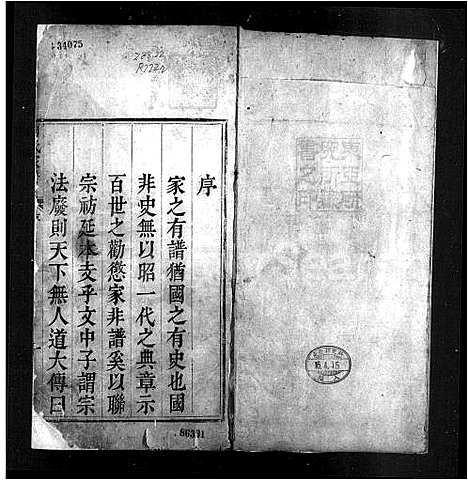 序
家之有譜猶國之有史也國
非史無以昭一代之典章示
百世之勸懲家非譜奚以聯
宗祊延本支乎文中子謂宗
法廢則天下無人道大傳曰
34075
86391
15.4.15